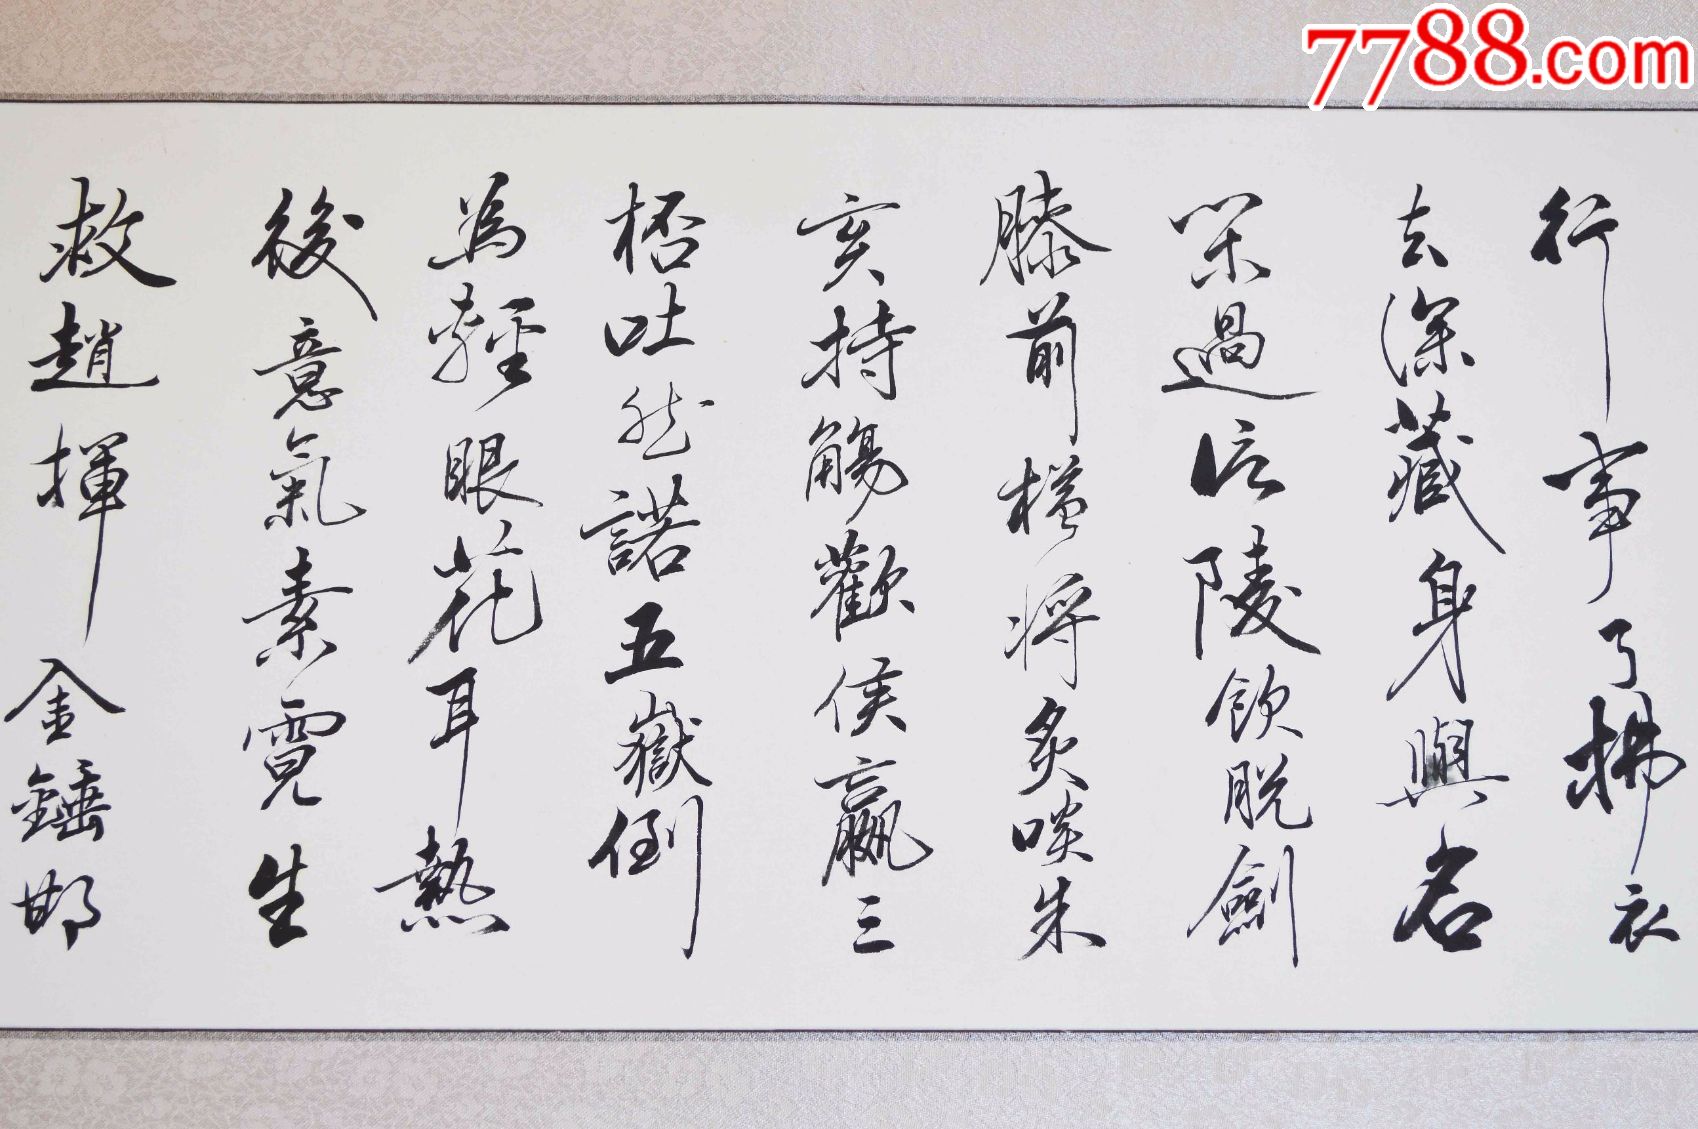 7788.com
行事了拂衣
去深藏身與名
閑過信陵飲脫劍
膝前橫將炙啖朱
亥持觴歡侯嬴三
桮吐然諾五嶽倒
為輕眼花耳熱
後意氣素霓生
救趙揮金錘邯